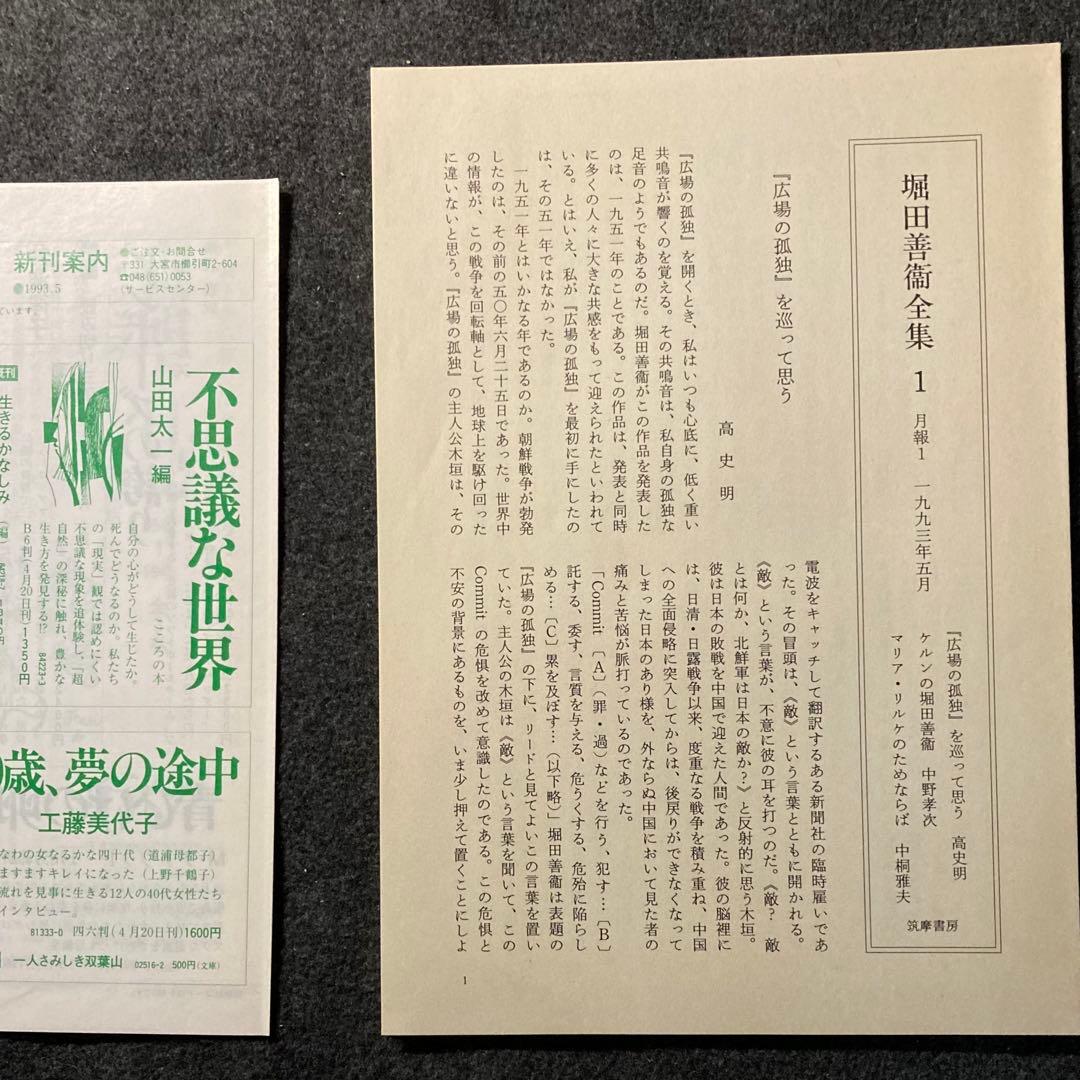 堀田善衞全集 1 月報1 一九九三年五月
『広場の孤独』を巡って思う 高史明
ケルンの堀田善衞 中野孝次
マリア・リルケのためならば 中桐雅夫
筑摩書房
『広場の孤独』を巡って思う
高史明
『広場の孤独』を開くとき、私はいつも心底に、低く重い
共鳴音が響くのを覚える。その共鳴音は、私自身の孤独な
足音のようでもあるのだ。堀田善衞がこの作品を発表した
のは、一九五一年のことである。この作品は、発表と同時
に多くの人々に大きな共感をもって迎えられたといわれて
いる。とはいえ、私が『広場の孤独』を最初に手にしたの
は、その五一年ではなかった。
一九五一年とはいかなる年であるのか。朝鮮戦争が勃発
したのは、その前の五〇年六月二十五日であった。世界中
の情報が、この戦争を回転軸として、地球上を駆け回った
に違いないと思う。『広場の孤独』の主人公木垣は、その
電波をキャッチして翻訳するある新聞社の臨時雇いであ
った。その冒頭は、《敵》という言葉とともに開かれる。
《敵》という言葉が、不意に彼の耳を打つのだ。《敵? 敵
とは何か、北鮮軍は日本の敵か?》と反射的に思う木垣。
彼は日本の敗戦を中国で迎えた人間であった。彼の脳裡に
は、日清・日露戦争以来、度重なる戦争を積み重ね、中国
への全面侵略に突入してからは、後戻りができなくなって
しまった日本のあり様を、外ならぬ中国において見た者の
痛みと苦悩が脈打っているのであった。
「Commit 〔A〕（罪・過）などを行う、犯す…〔B〕
託する、委す、言質を与える、危うくする、危殆に陥らし
める…〔C〕累を及ぼす…（以下略）」堀田善衞は表題の
『広場の孤独』の下に、リードと見てよいこの言葉を置い
ていた。主人公の木垣は《敵》という言葉を聞いて、この
Commit の危惧を改めて意識したのである。この危惧と
不安の背景にあるものを、いま少し押えて置くことにしよ
1
新刊案内
●1993.5
●ご注文・お問合せ
〒331 大宮市櫛引町2-604
☎048(651)0053
(サービスセンター)
ています。
不思議な世界
山田太一編
こころの本
自分の心がどうして生じたか。
死んでどうなるのか。私たち
の「現実」観では認めにくい
不思議な現象を追体験し、「超
自然」の深秘に触れ、豊かな
生き方を発見する!?
84223-3
B6判(4月20日刊)1350円
既刊
生きるかなしみ
歳、夢の途中
工藤美代子
なわの女なるかな四十代（道浦母都子）
ますますキレイになった（上野千鶴子）
流れを見事に生きる12人の40代女性たち
インタビュー』
81333-0 四六判(4月20日刊)1600円
一人さみしき双葉山 02516-2 500円(文庫)